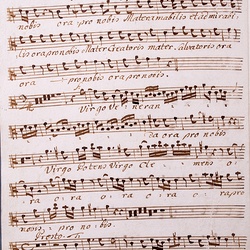 nobis ora pro nobis Mater amabilis et admirabi
lis ora pro nobis Mater Creatoris mater salvatoris ora
ora pro nobis ora pro nobis.
Virgo Ve neran
da ora pro nobis
Virgo Potens Virgo Cle mens o
ra o ra o ra o ra pro
nobis pro nobis.
Presto